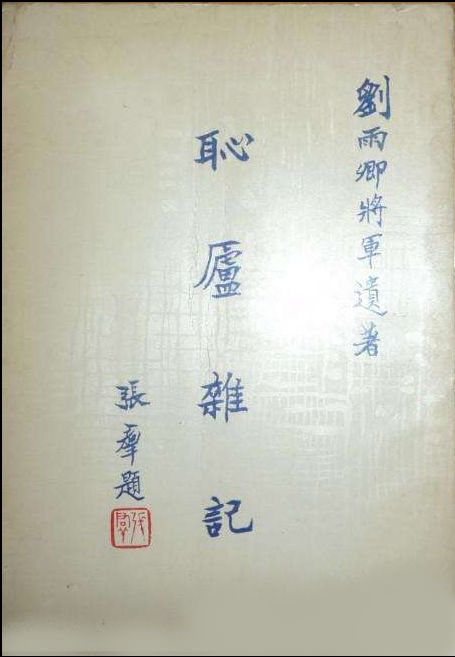 劉雨卿將軍遺著
恥廬雜記
張羣題
張羣